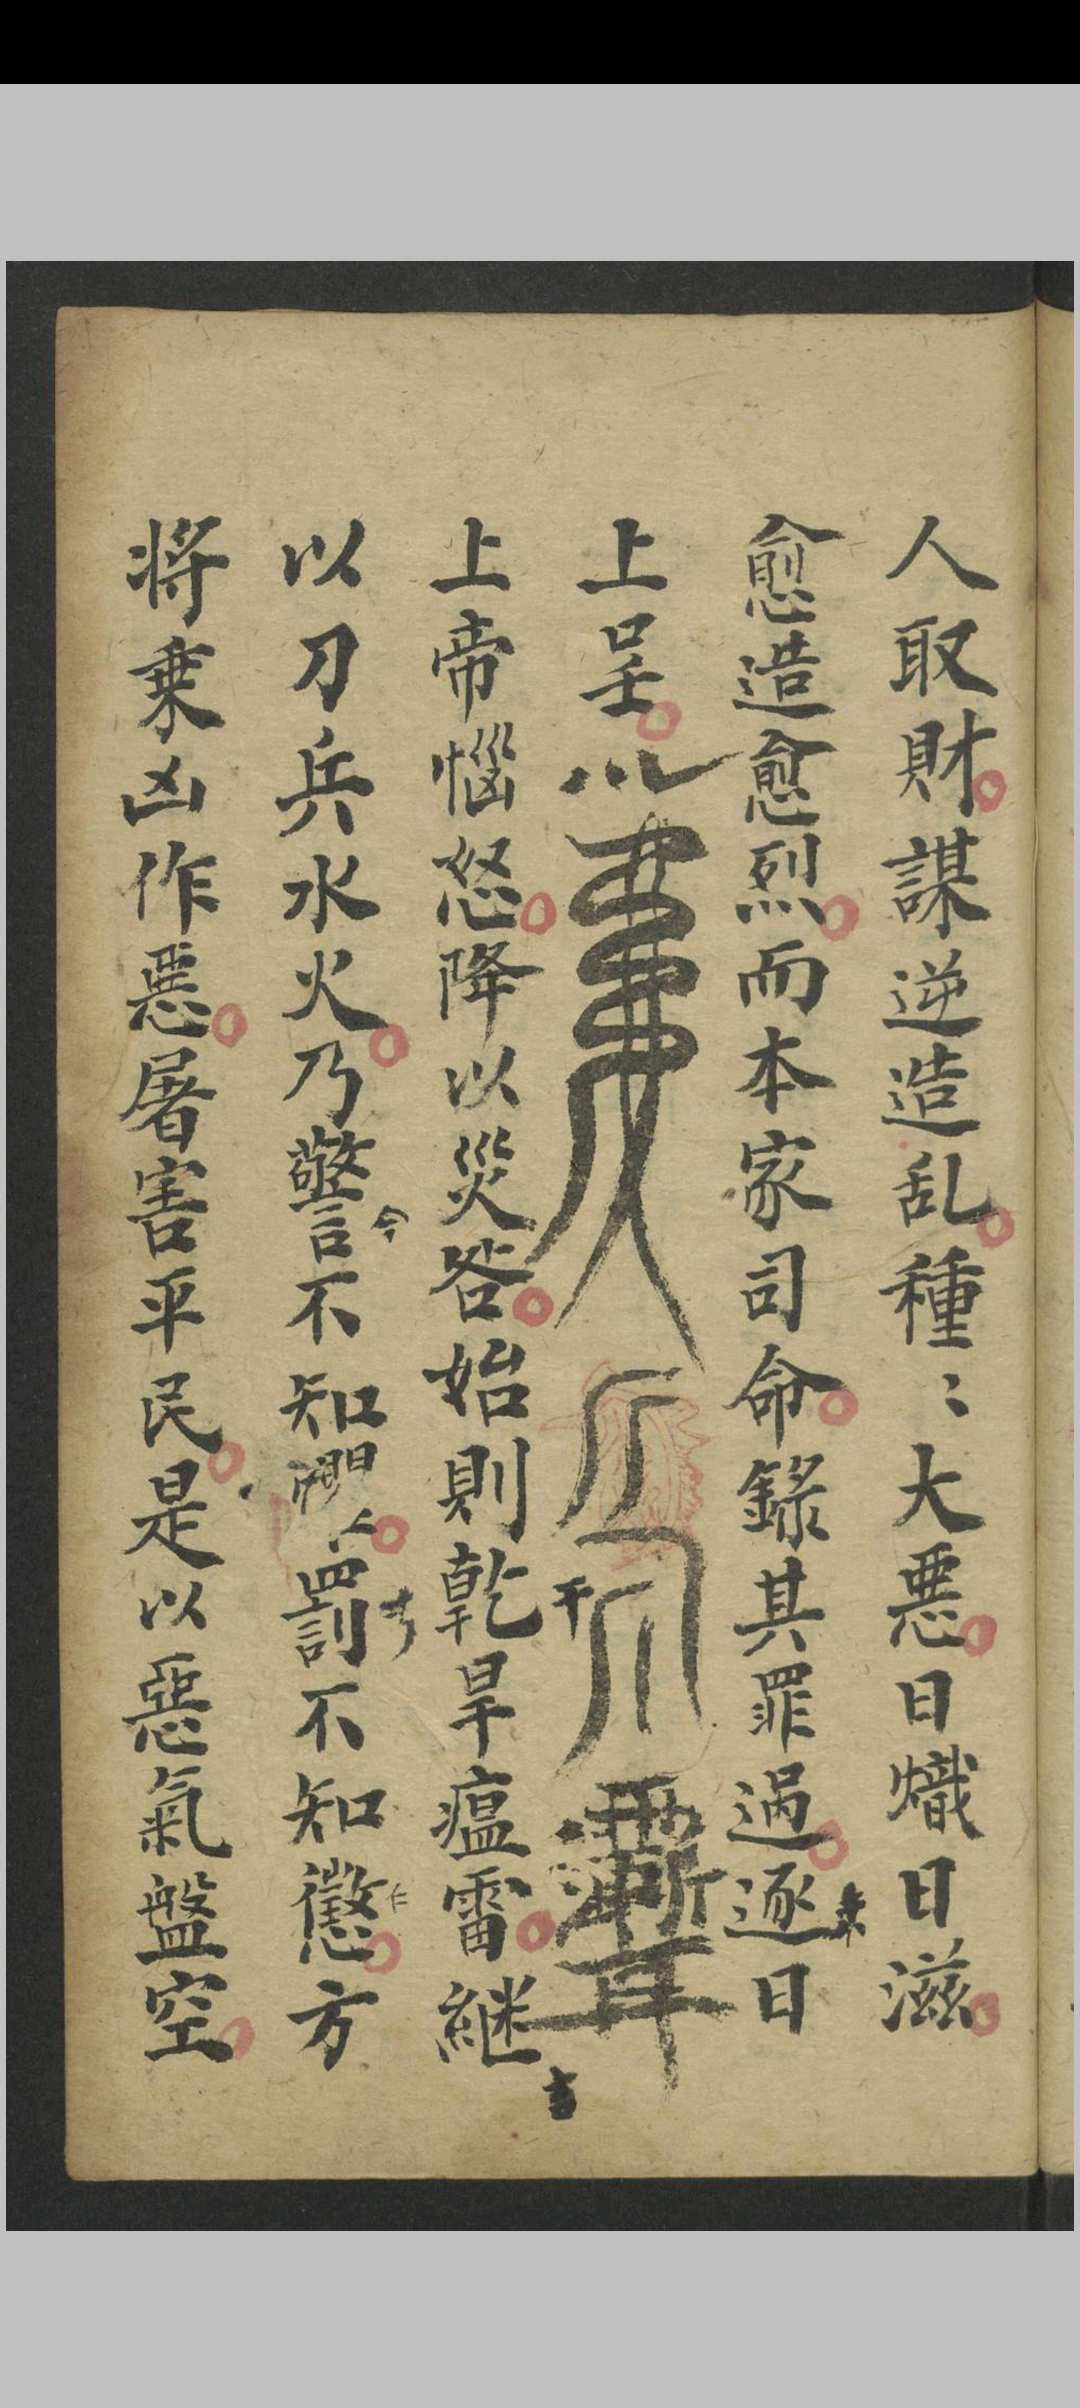 人取財謀逆造乱種〻大悪日熾日滋
愈造愈烈而本家司命錄其罪過逐日
上呈
上帝惱怒降以災咎始則乾旱瘟雷継
以刀兵水火乃警不知罰不知懲方
将乗凶作悪屠害平民是以惡氣盤空